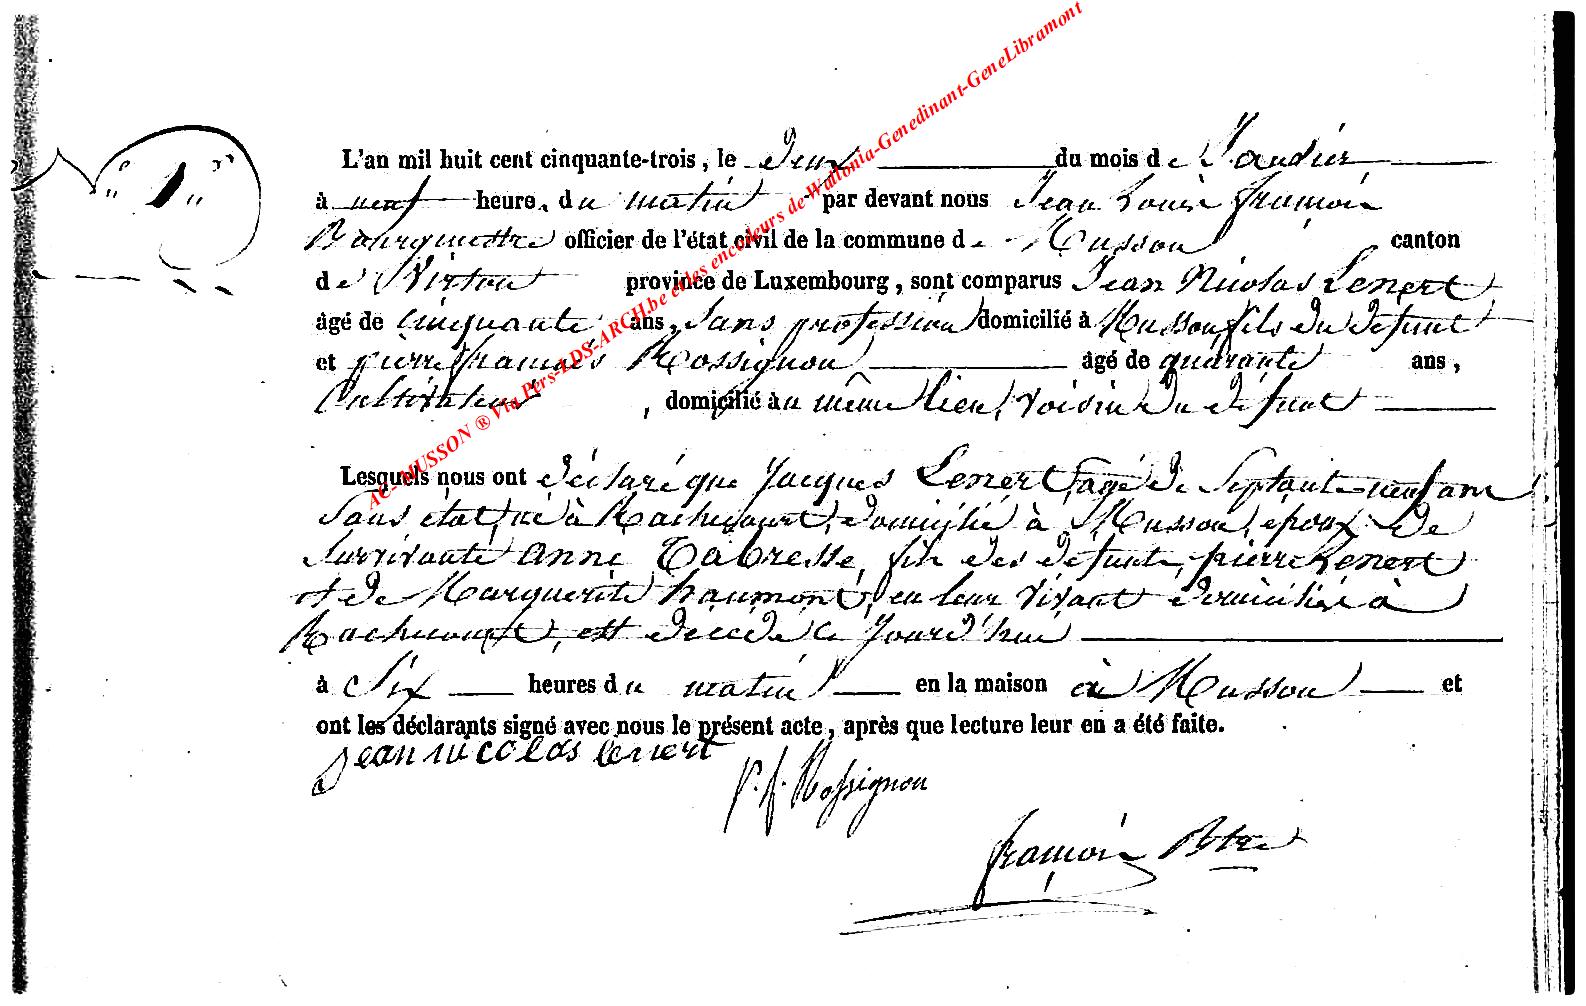 AC-MUSSON ® Via Pers-LDS-ARCH.be et les encodeurs de Wallonia-Genedinant-GeneLibramont
"1"
L'an mil huit cent cinquante-trois, le deux du mois de Janvier
à neuf heures du matin par devant nous Jean Louis françois
Bourguestre officier de l'état civil de la commune de Musson canton
de Virton province de Luxembourg, sont comparus Jean Nicolas Lenert
âgé de cinquante ans, sans profession domicilié à Musson, fils du defunt
et pierre françois Rossignon âgé de quarante ans,
Cultivateur, domicilié au même lieu, voisin du défunt
Lesquels nous ont déclaré que Jacques Lenert, agé de Septante-neuf ans
Sans état, né à Rachecourt, domicilié à Musson, époux de
Survivante anne Tabresse, fils des defunts pierre Lenert
et de Marguerite haumont, en leur vivant domiciliés à
Rachecourt, est decédé ce jourd'hui
à Six heures du matin en la maison à Musson et
ont les déclarants signé avec nous le présent acte, après que lecture leur en a été faite.
Jean nicolas lenert
P. f. Rossignon
françois Btre